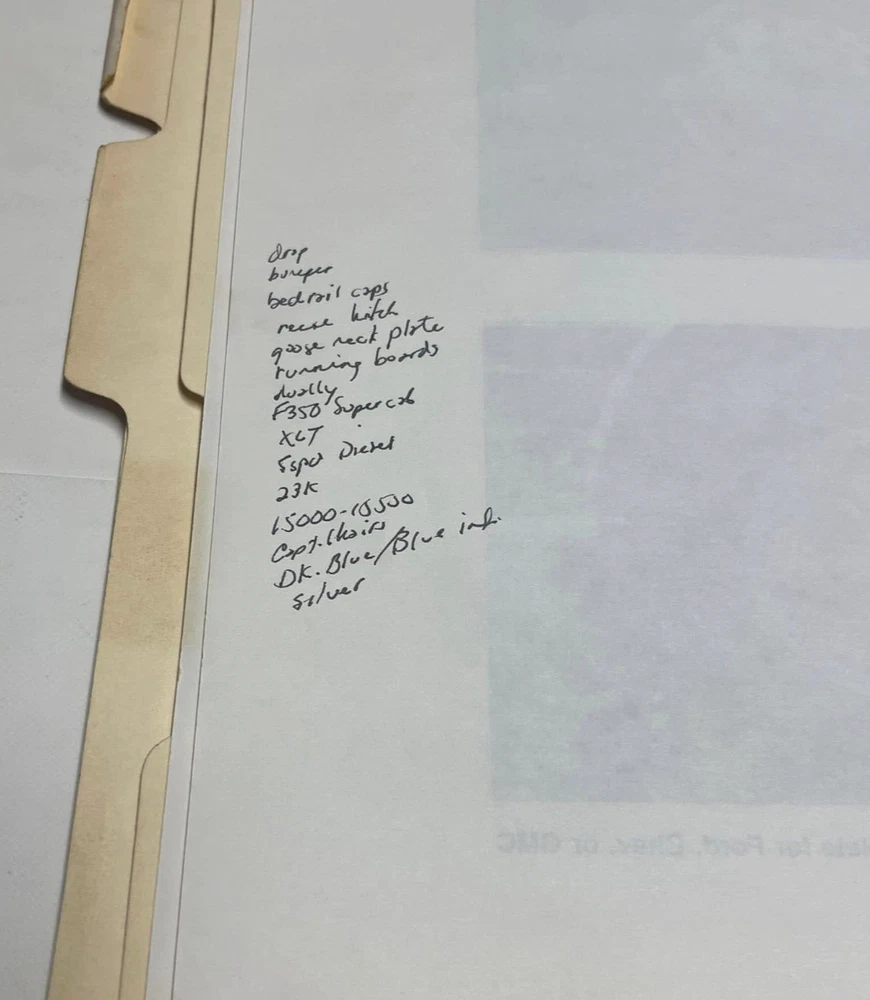 drop
bumper
bedrail caps
reese hitch
goose neck plate
running boards
dually
F350 Supercab
XLT
5spd Diesel
23K
15000-15500
Capt. Chairs
DK. Blue/Blue int.
Silver
for Ford, Chev. or GMC